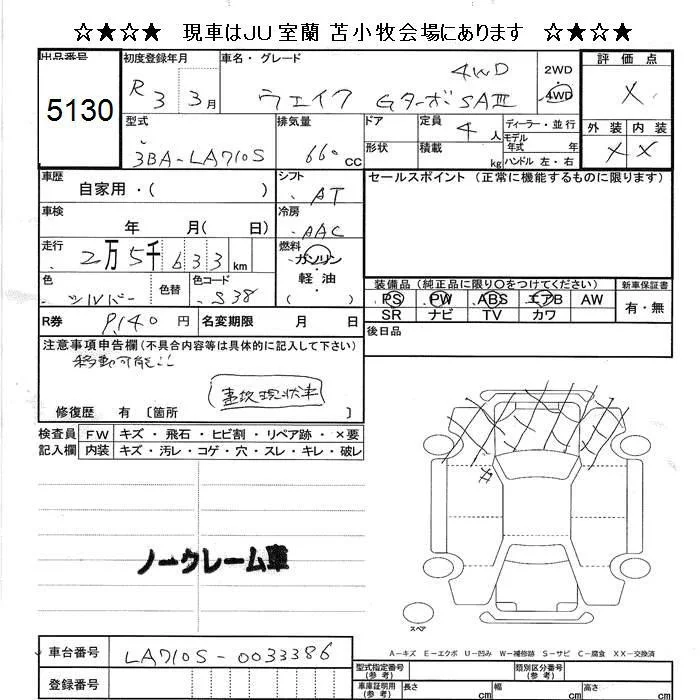 ☆★☆★ 現車はJU室蘭 苫小牧会場にあります ☆★☆★
出品番号 5130
初度登録年月 R3 3月
車名・グレード ウェイク GターボSAⅢ 4WD
2WD
4WD
評価点 X
外装 内装
X X
型式 3BA-LA710S
排気量 660 CC
ドア
形状
定員 4人
積載 kg
ディーラー・並行
モデル
年式 年
ハンドル 左・右
車歴 自家用・( )
シフト AT
セールスポイント (正常に機能するものに限ります)
車検 年 月( 日)
冷房 AAC
走行 2万5千633km
燃料 ガソリン
軽・油
( )
色 シルバー
色替
色コード S38
装備品(純正品に限り○をつけてください)
PS PW ABS エアB AW
SR ナビ TV カワ
新車保証書
有・無
R券 9,140円
名変期限 月 日
後日品
注意事項申告欄(不具合内容等は具体的に記入して下さい)
移動可能!!
事故現状車
修復歴 有 〔箇所 〕
検査員
記入欄
FW キズ・飛石・ヒビ割・リペア跡・×要
内装 キズ・汚レ・コゲ・穴・スレ・キレ・破レ
ノークレーム車
スペア
A−キズ E−エクボ U−凹み W−補修跡 S−サビ C−腐食 XX−交換済
車台番号 LA710S-0033386
登録番号
型式指定番号
(参考)
類別区分番号
(参考)
車庫証明用
(参考)
長さ cm
幅 cm
高さ cm